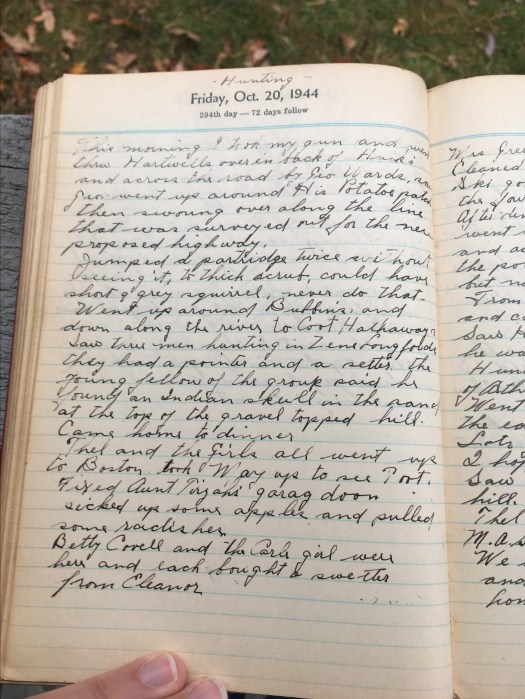 - Hunting -
Friday, Oct. 20, 1944
294th day — 72 days follow
This morning I took my gun and went
thru Hartwells over in back of Huck's
and across the road by Geo Wards, saw
Geo. went up around His Potatoe patch
then swoung over along the line
that was surveyed out for the new
proposed highway.
Jumped a partridge twice without
seeing it, to thick scrub, could have
short a grey squirrel, never do that
Went up around Bubbins, and
down along the river to Coot Hathaway's
Saw three men hunting in
they had a pointer and a setter, the
young fellow of the group said he
found an Indian skull in the sand
at the top of the gravel topped hill.
Came home to dinner
Thel and the Girls all went up
to Boston, took May up to see Toot.
Fixed Aunt Tirzahs garag door
picked up some apples and pulled
some radishes
Betty Covell and the girl were
here and each bought a swetter
from Eleanor
Mrs Gree
Cleaned
Ski go
the
After din
went
and
the po
but n
From
and c
Saw H
he wa
Hun
of Oth
Went
the ea
Lots
I ho
Saw
hill.
Thel
M.a.s
We
and
hom